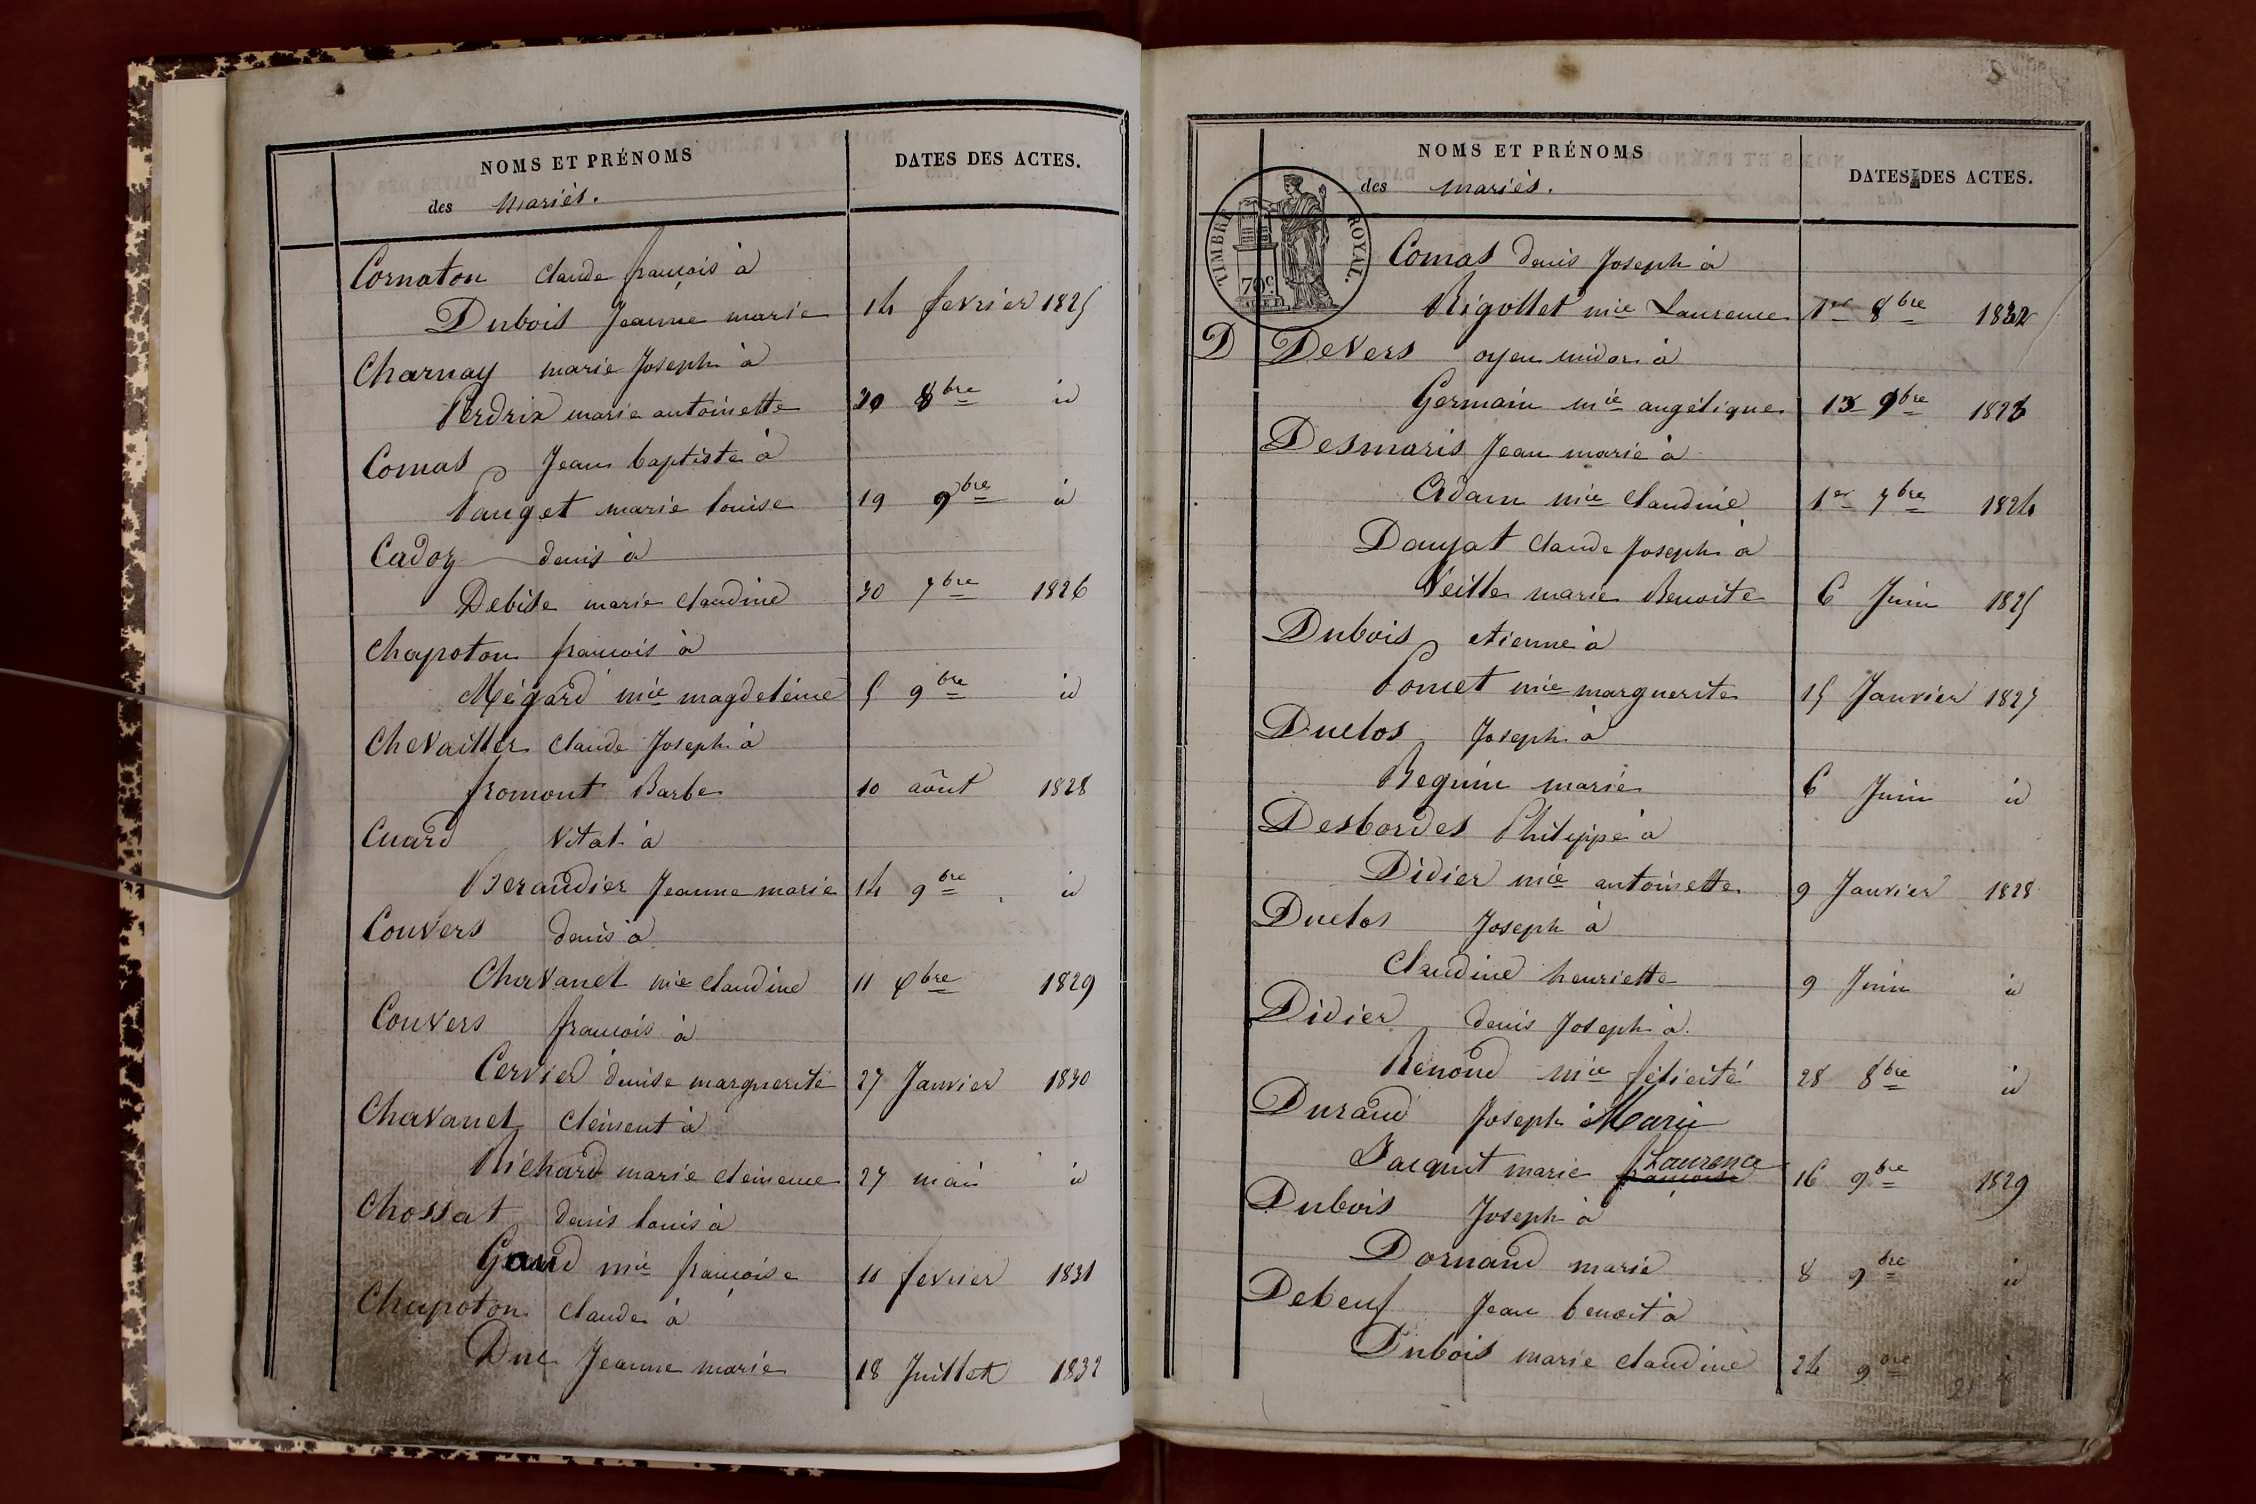 NOMS ET PRÉNOMS
des mariés.
DATES DES ACTES.
Cornaton claude francois à
Dubois Jeanne marie 14 fevrier 1825
Charnay marie Joseph à
Perdrix marie antoinette 20 8bre id
Comas Jean baptiste à
Panget marie louise 19 9bre id
Cadoz denis à
Debise marie claudine 30 7bre 1826
Chapoton francois à
Mégard mie magdeleine 5 9bre id
Chevailler claude Joseph à
fromont Barbe 10 août 1828
Cuard Vital à
Beraudier Jeanne marie 14 9bre id
Convers denis à
Chavanel mie claudine 11 bre 1829
Convers francois à
Cervier denise marguerite 27 Janvier 1830
Chavanel clément à
Richard marie clemence 27 mai id
Chossat denis louis à
Gaud mie francoise 10 fevrier 1831
Chapoton claude à
Duc Jeanne marie 18 Juillet 1832
NOMS ET PRÉNOMS
des mariés.
DATES DES ACTES.
TIMBRE ROYAL.
70c.
Comas denis Joseph à
Rigollet mie Laurence 1er 8bre 1832
D Devers oyen midor à
Germain mie angélique 13 9bre 1823
Desmaris Jean marie à
Adam mie claudine 1er 7bre 1824
Daujat claude Joseph à
Veille marie Benoite 6 Juin 1825
Dubois etienne à
Poncet mie marguerite 15 Janvier 1827
Duclos Joseph à
Beguin marie 6 Juin id
Desbordes Philippe à
Didier mie antoinette 9 Janvier 1828
Duclos Joseph à
Claudine henriette 9 Juin id
Didier denis Joseph à
Renoud mie félicité 28 8bre id
Durand Joseph Marie
Laurence
Jacquet marie francoise 16 9bre 1829
Dubois Joseph à
Dornand marie 8 9bre id
Debeuf Jean benoit à
Dubois marie claudine 24 9bre id